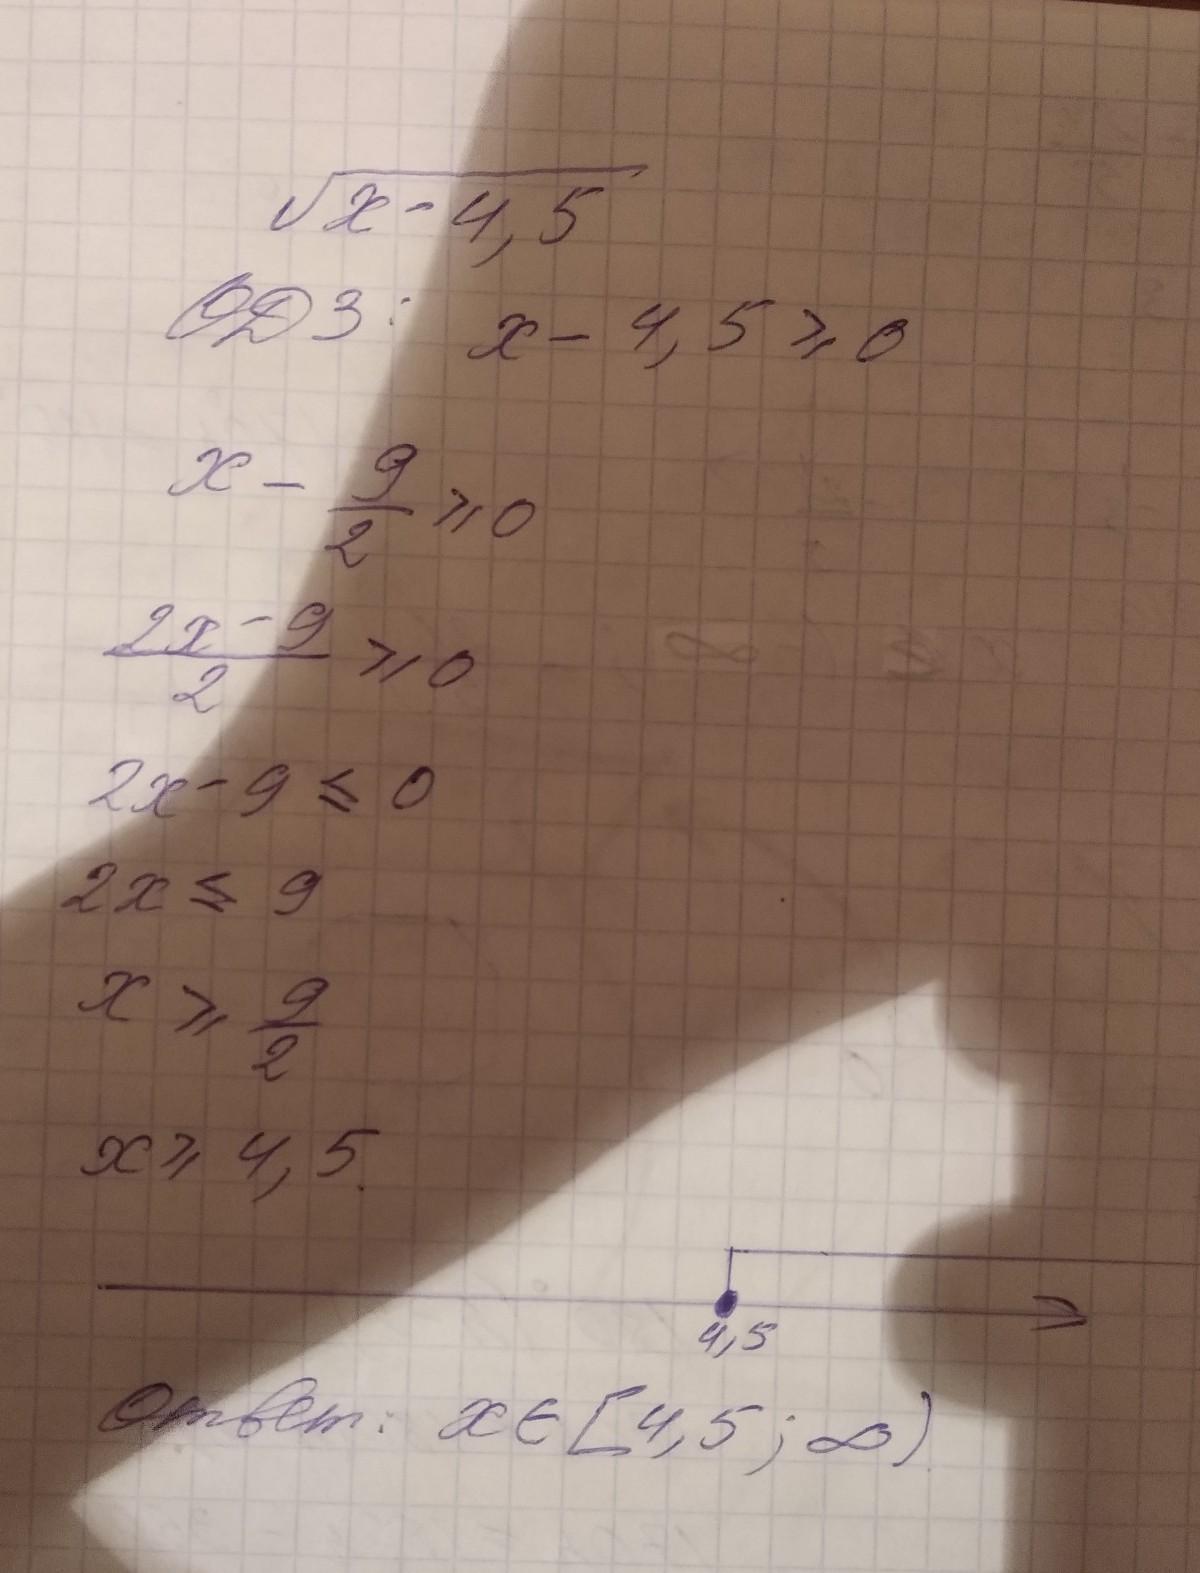 √x-4,5
ОДЗ: x-4,5⩾0
x - 9/2 ⩾0
2x-9/2 ⩾0
2x-9⩽0
2x⩽9
x⩾ 9/2
x⩾4,5.
4,5
Ответ: x∈[4,5;∞)